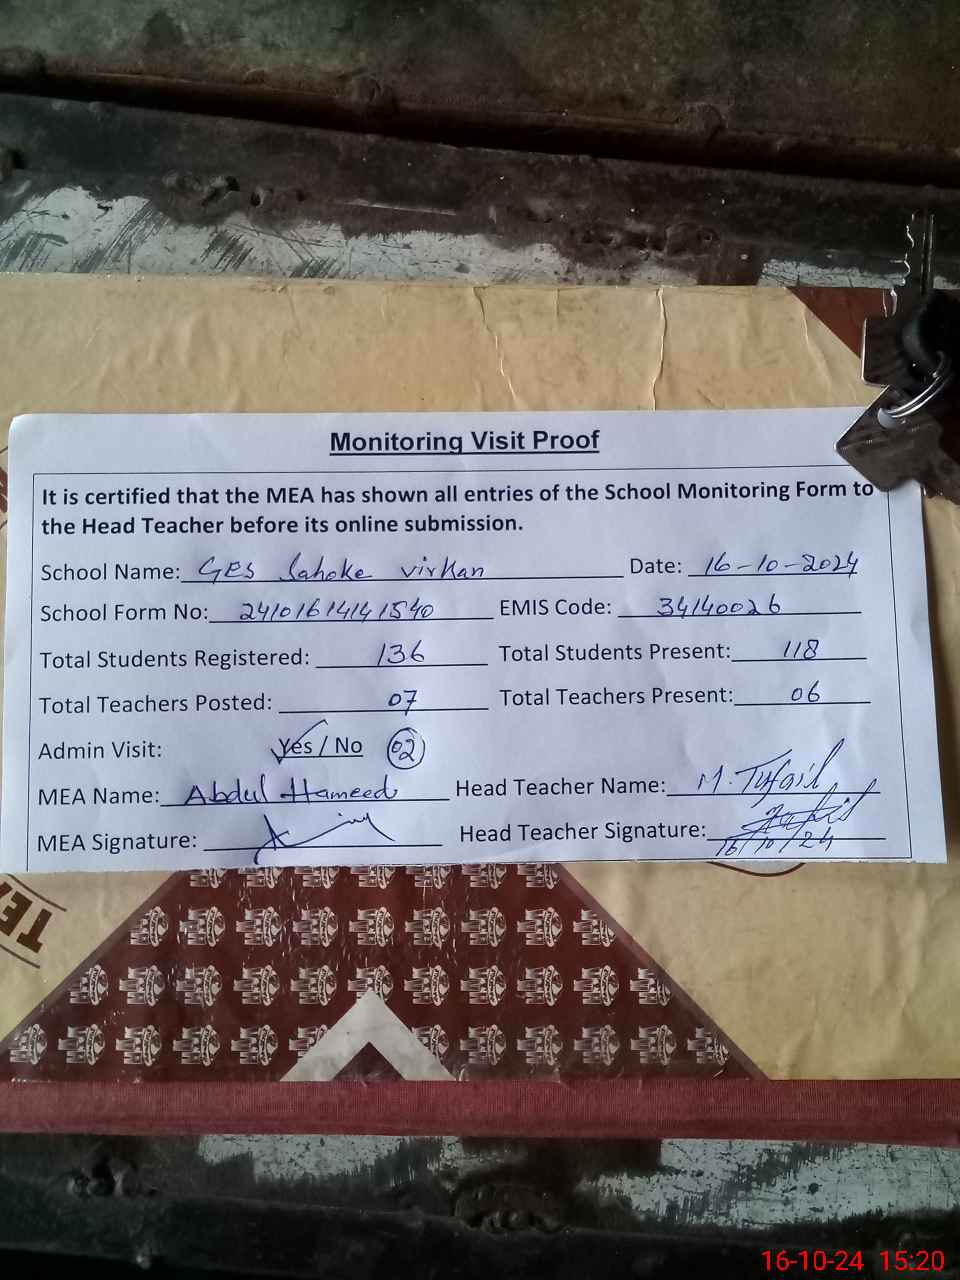 Monitoring Visit Proof
It is certified that the MEA has shown all entries of the School Monitoring Form to
the Head Teacher before its online submission.
School Name: GES Sahoke virkan Date: 16-10-2024
School Form No: 24101614141540 EMIS Code: 34140026
Total Students Registered: 136 Total Students Present: 118
Total Teachers Posted: 07 Total Teachers Present: 06
Admin Visit: Yes / No 02
MEA Name: Abdul Hameed Head Teacher Name: M. Tufail
MEA Signature: Head Teacher Signature:
16/10/24
TEA
16-10-24 15:20